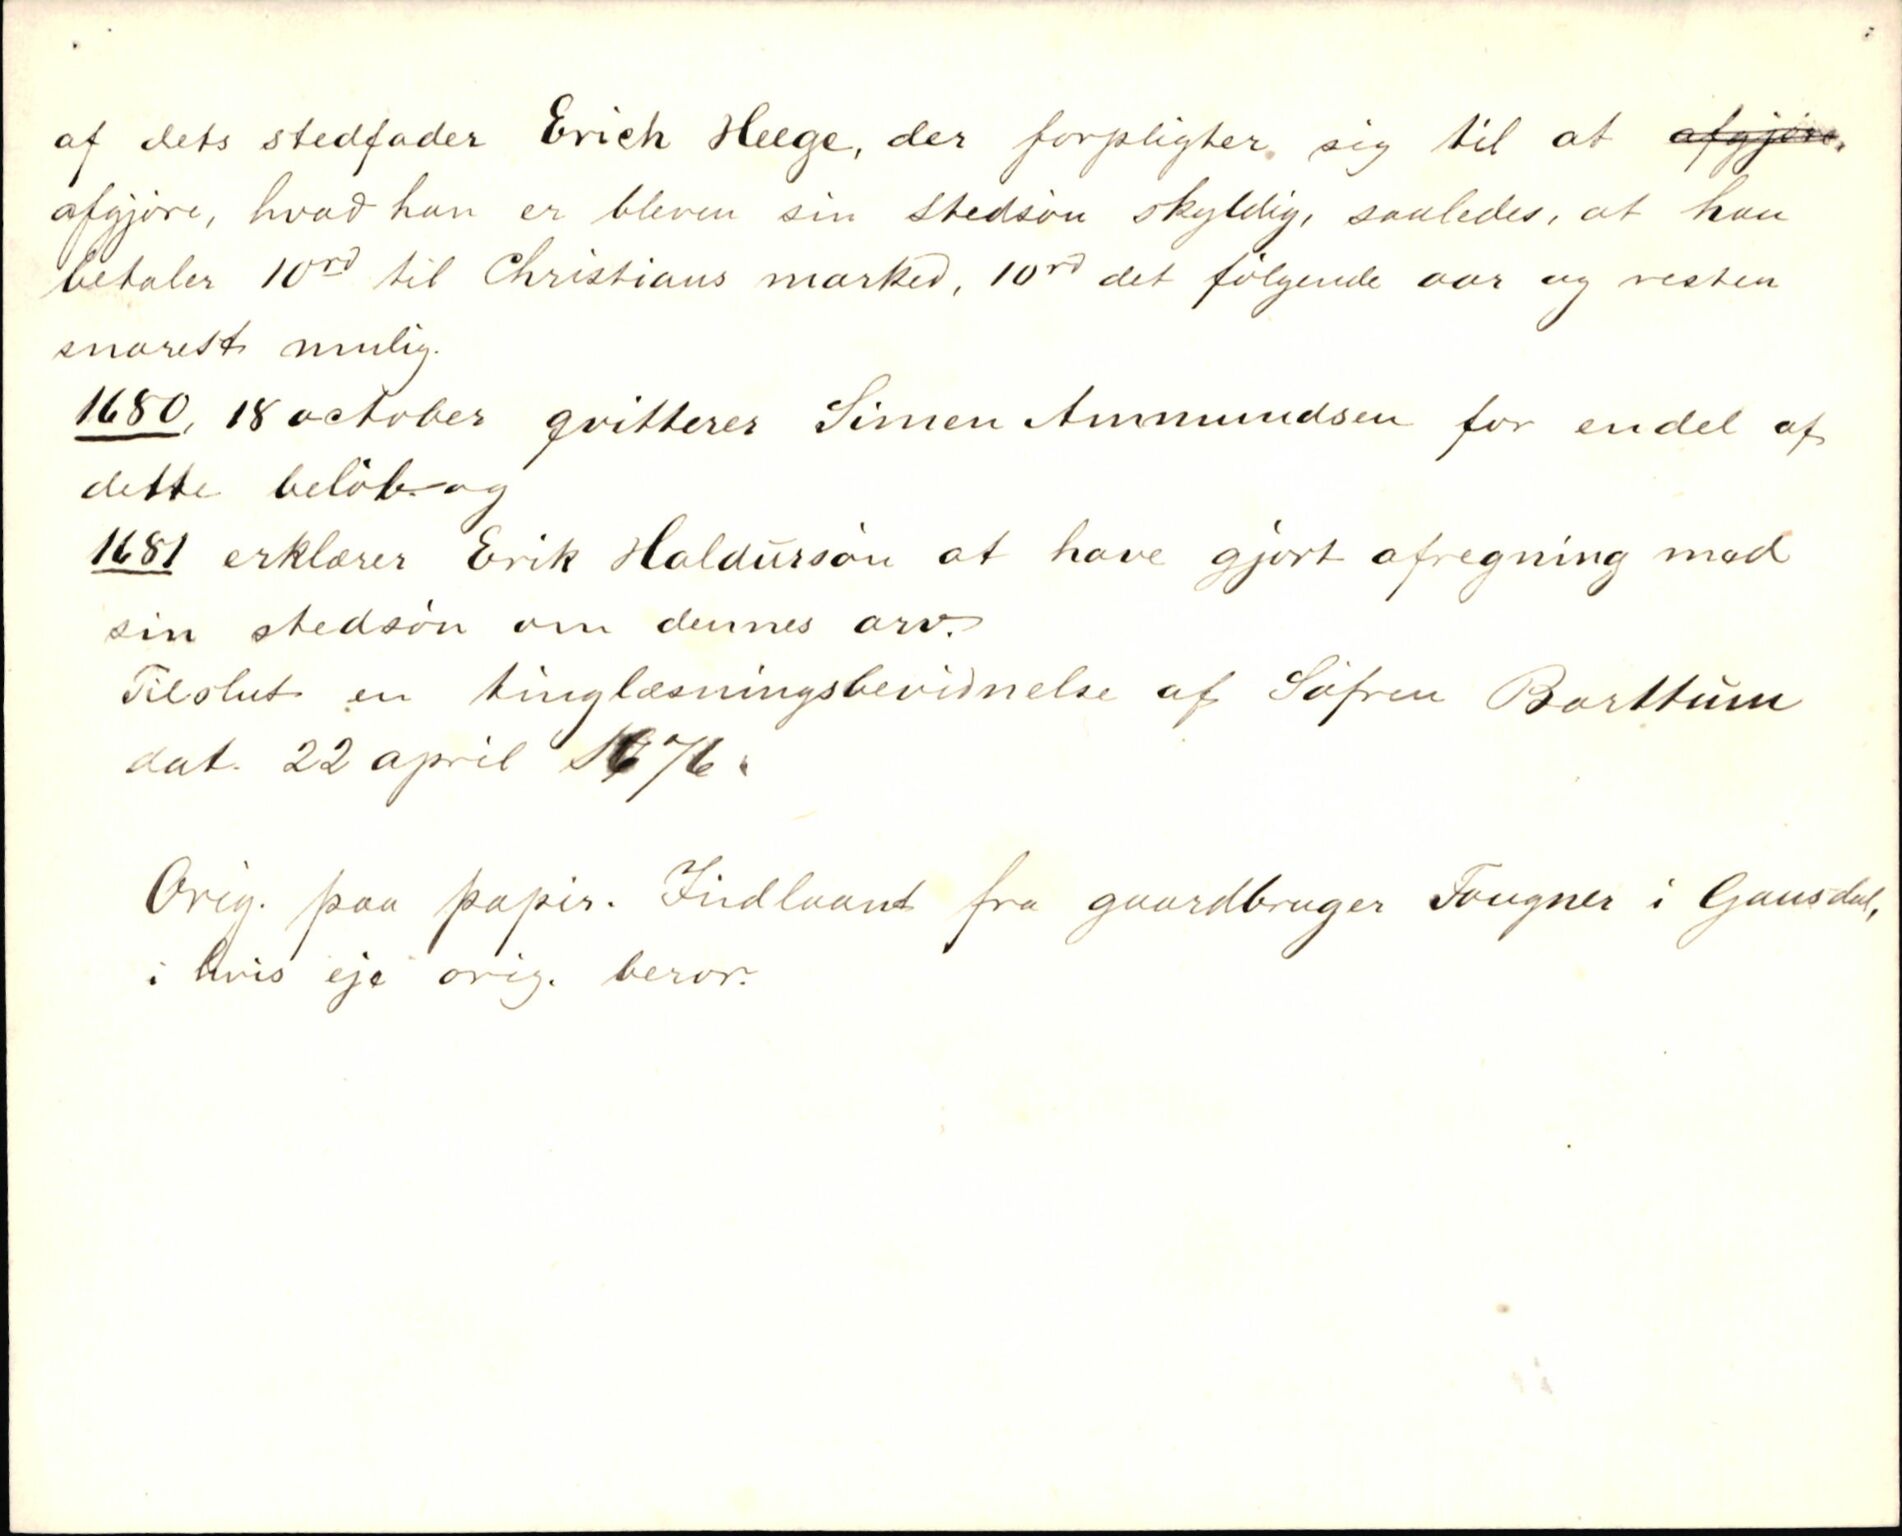 af dets stedfader Erich Heege, der forpligter sig til at ~~afgjøre,~~
afgjøre, hvad han er bleven sin stedsøn skyldig, saaledes, at han
betaler 10rd til Christians marked, 10rd det følgende aar og resten
snarest mulig.
1680, 18 october qvitterer Simen Ammundsen for endel af
dette beløb og
1681 erklærer Erik Haldursøn at have gjort afregning med
sin stedsøn om dennes arv.
Tilslut en tinglæsningsbevidnelse af Søfren Barttum
dat. 22 april 1676.
Orig. paa papir. Indlaant fra gaardbruger Fougner i Gausdal,
i hvis eje orig. beror.